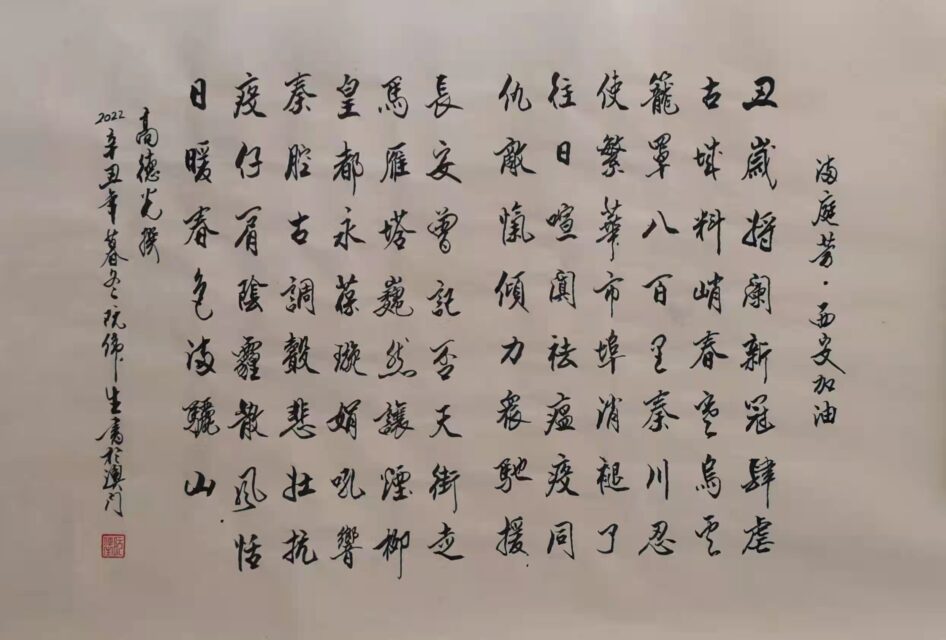 满庭芳·西安加油
丑歲將闌新冠肆虐
古城料峭春寒烏雲
籠罩八百里秦川忍
使繁華市埠消褪了
往日喧闐祛瘟疫同
仇敵愾傾力衆馳援
長安曾記否天街走
馬雁塔巍然讓煙柳
皇都永葆璇娟吼響
秦腔古調悲壯抗
疫仔肩陰霾散風恬
日暖春色满驪山
高德光撰
2022辛丑年暮冬阮偉生書於澳門